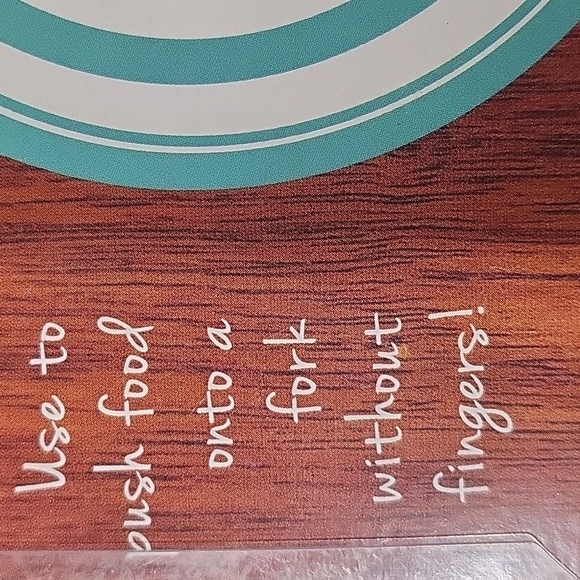 Use to
push food
onto a
fork
without
fingers!